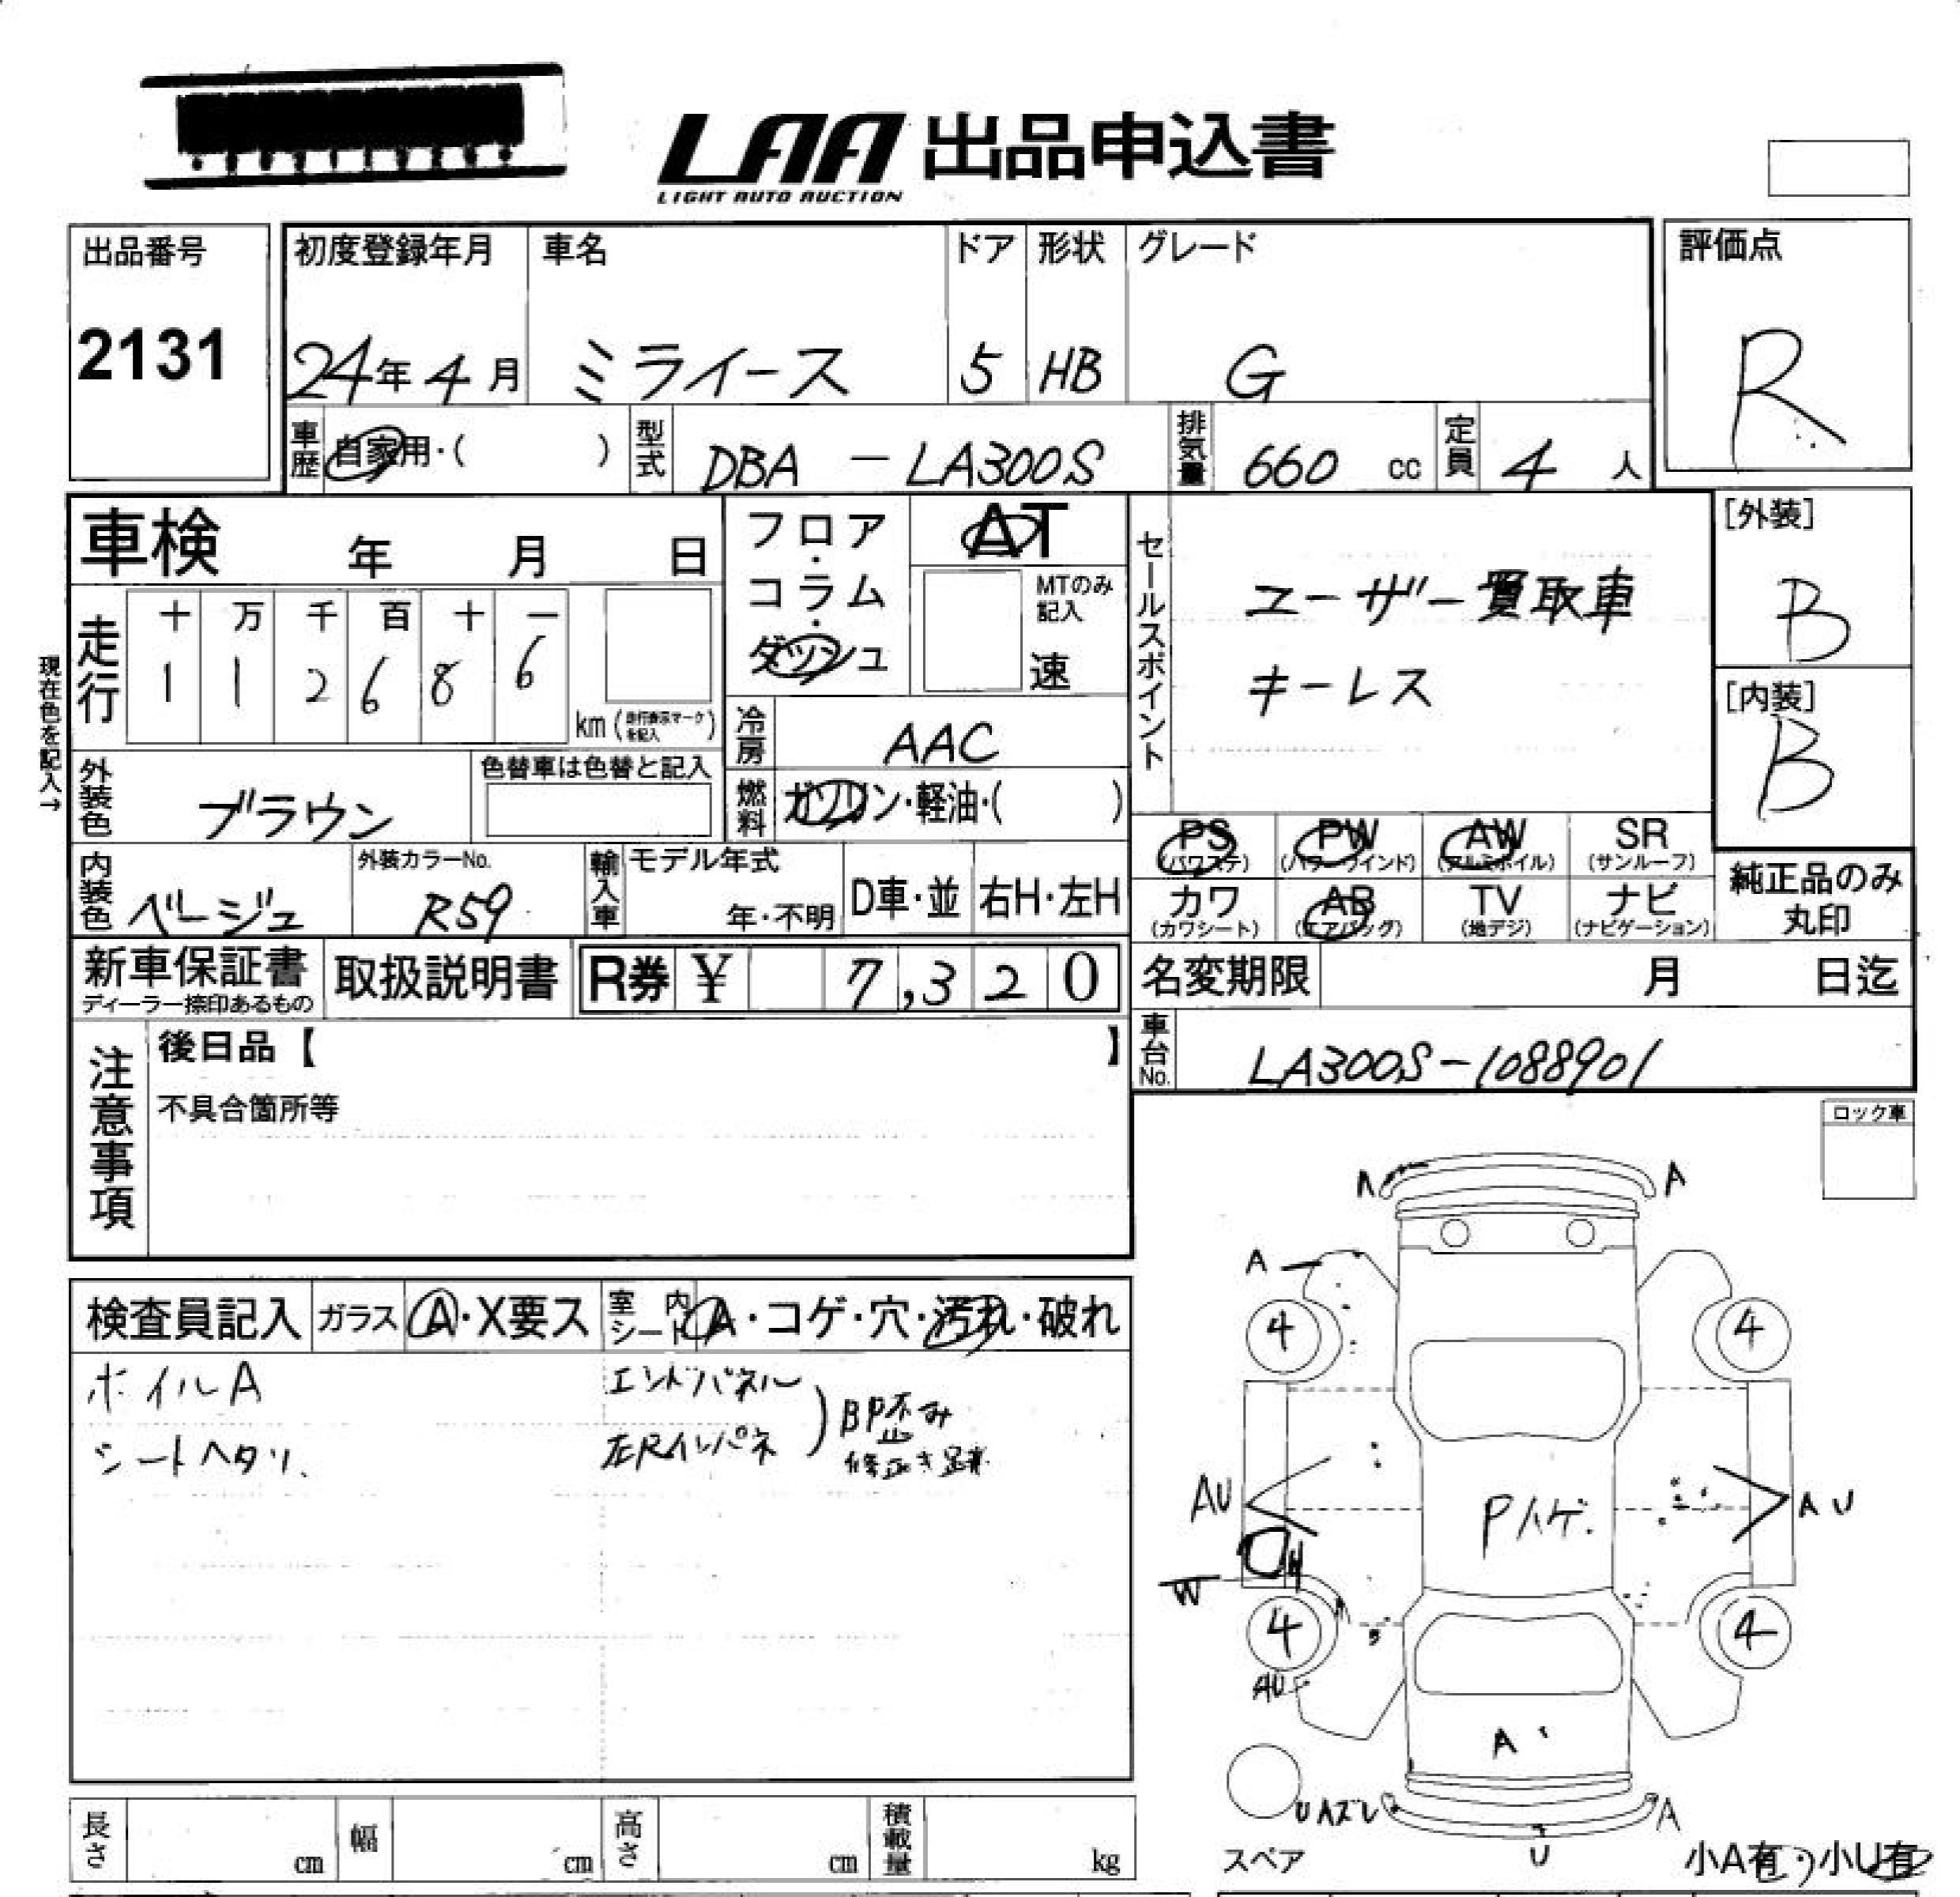 LAA 出品申込書
LIGHT AUTO AUCTION
出品番号
2131
初度登録年月
24年4月
車名
ミライース
ドア
5
形状
HB
グレード
G
評価点
R
車歴
自家用・( )
型式
DBA - LA300S
排気量
660 cc
定員
4 人
車検 年 月 日
フロア・コラム・ダッシュ
AT
MTのみ記入
速
セールスポイント
ユーザー買取車
キーレス
[外装]
B
[内装]
B
現在色を記入→
走行
十 万 千 百 十 一
1 1 2 6 8 6
km (走行表示マークを記入)
冷房
AAC
燃料
ガソリン・軽油・( )
外装色
ブラウン
色替車は色替と記入
内装色
ベージュ
外装カラーNo.
R59
輸入車
モデル年式
年・不明
D車・並
右H・左H
PS
(パワステ)
PW
(パワーウインド)
AW
(アルミホイル)
SR
(サンルーフ)
カワ
(カワシート)
AB
(エアバッグ)
TV
(地デジ)
ナビ
(ナビゲーション)
純正品のみ
丸印
新車保証書
ディーラー捺印あるもの
取扱説明書
R券 ¥ 7,320
名変期限 月 日迄
車台No.
LA300S-1088901
注意事項
後日品【 】
不具合箇所等
ロック車
検査員記入
ガラス
A・X要ス
室内シート
A・コゲ・穴・汚れ・破れ
ホイルA
シートヘタリ
エンドパネル
左Rインパネ
BP歪み
修正き跡
A A
A
4 4
AU
Pハゲ
AU
W
4 4
AU
A
UAズレ
A
U
スペア
小A有・小U有
長さ cm
幅 cm
高さ cm
積載量 kg